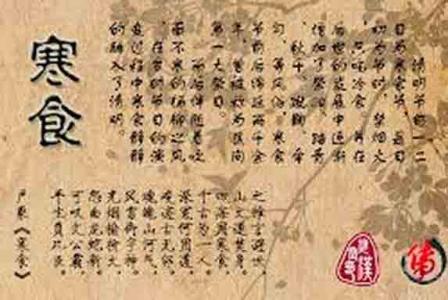 寒食
清明节前一二
日为寒食节,是日
初为节时,禁烟火
,只吃冷食。并在
后世的发展中逐渐
增加了祭扫、踏青
、秋千、蹴鞠、牵
勾等风俗,寒食
节前后绵延两千余
年,曾被称为民间
第一大祭日。
而后伴随着吹
面不寒的杨柳之风
,在岁时节日的演
变过程中寒食渐渐
的融入了清明。
之推言避世
山火遂焚身。
四海同寒食,
千古为一人。
深冤何用道,
峻迹古无邻。
魂魄山河气,
风雷御宇神。
光烟榆柳火,
怨曲龙蛇新。
可叹文公霸,
平生负此臣。
卢象《寒食》